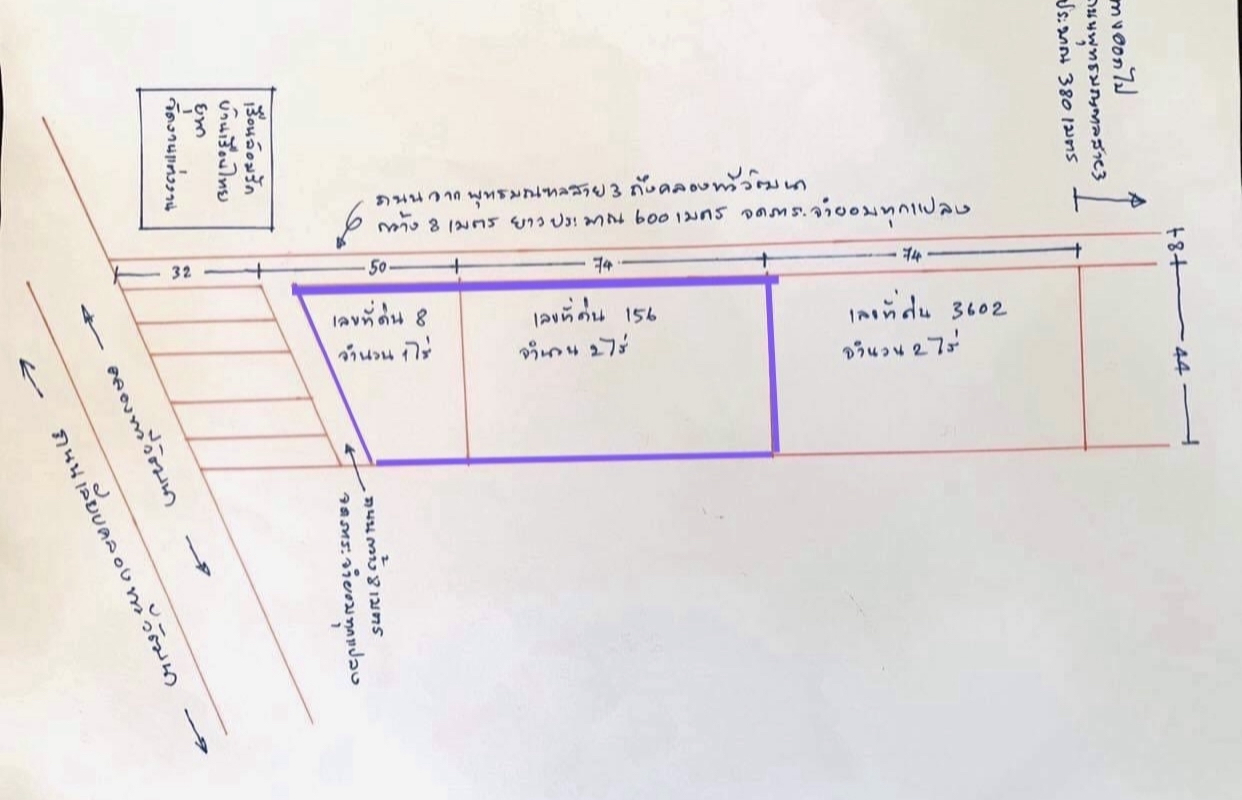 ทางออกไป
ถนนพุทธมณฑลสาย3
ประมาณ 380 เมตร
เรือนล้อมรัก
บ้านเรือนไทย
ยุพา
จัดงานแต่งงาน
ถนน จาก พุทธมณฑลสาย 3 ถึงคลองทวีวัฒนา
กว้าง 8 เมตร ยาวประมาณ 600 เมตร จดภาระจำยอมทุกแปลง
32
50
74
74
8
44
เลขที่ดิน 8
จำนวน 1 ไร่
เลขที่ดิน 156
จำนวน 2 ไร่
เลขที่ดิน 3602
จำนวน 2 ไร่
คลองทวีวัฒนา
ถนนเลียบคลองทวีวัฒนา
ถนนกว้าง 8 เมตร
จดภาระจำยอมทุกแปลง